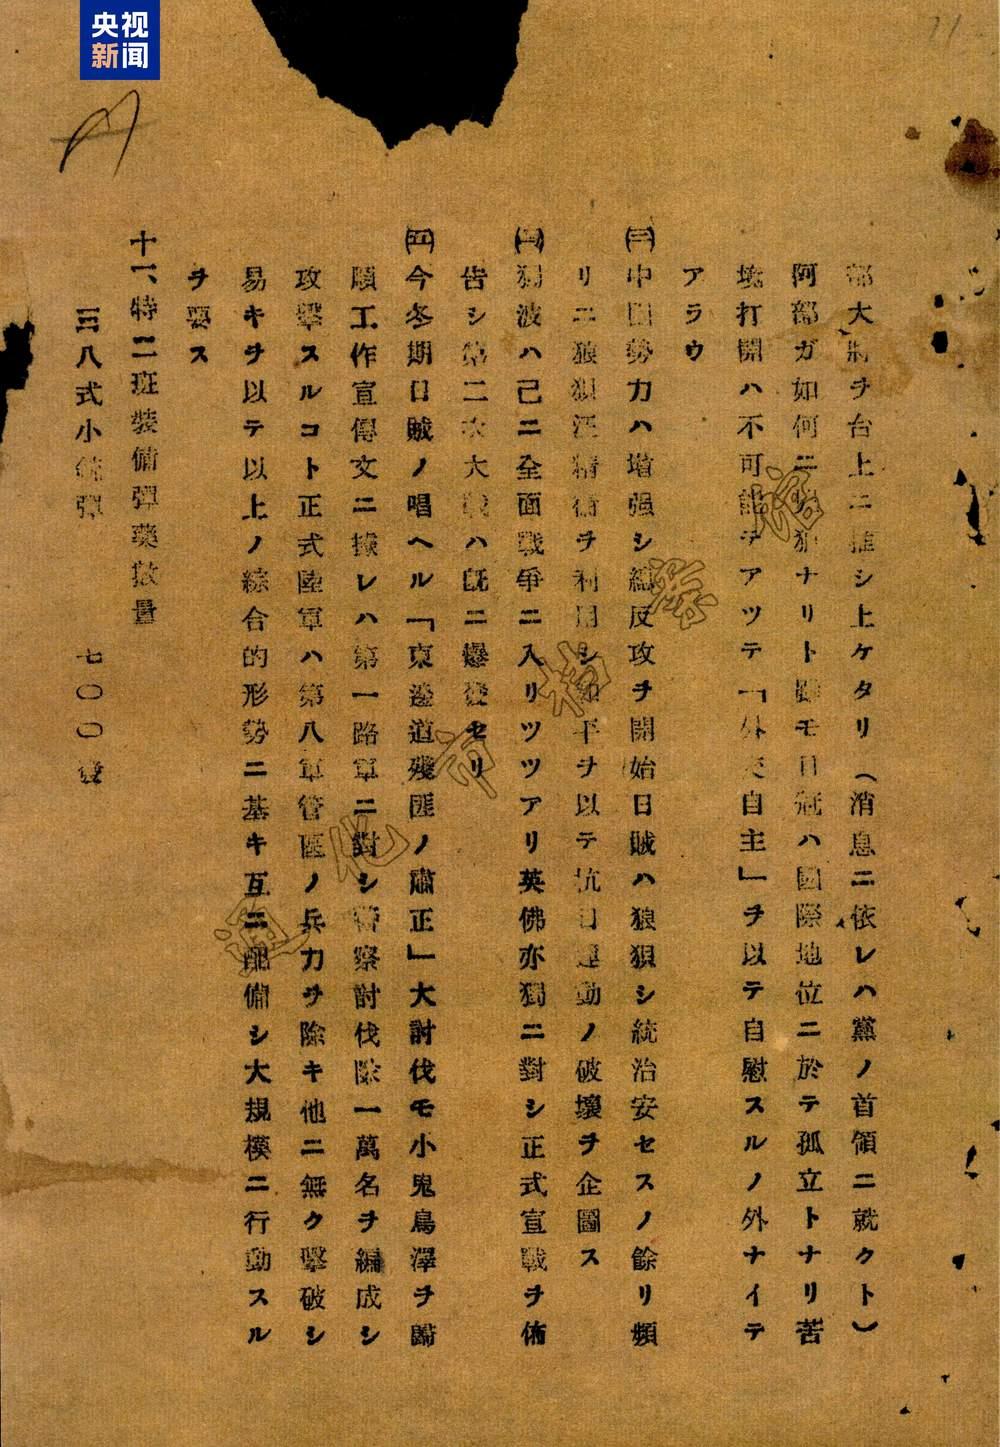 央视
新闻
11
部大將ヲ台上ニ推シ上ケタリ（消息ニ依レハ黨ノ首領ニ就クト）
阿部ガ如何ニ ナリト雖モ日冦ハ國際地位ニ於テ孤立トナリ苦
境打開ハ不可能デアツテ「外交自主」ヲ以テ自慰スルノ外ナイテ
アラウ
㈢中國勢力ハ増强シ總反攻ヲ開始日賊ハ狼狽シ統治安セスノ餘リ頻
リニ狼狽汪精衞ヲ利用シ和平ヲ以テ抗日運動ノ破壞ヲ企圖ス
㈣獨波ハ己ニ全面戰爭ニ入リツツアリ英佛亦獨ニ對シ正式宣戰ヲ佈
告シ第二次大戰ハ既ニ爆發セリ
㈤今冬期日賊ノ唱ヘル「東邊道殘匪ノ肅正」大討伐モ小鬼鳥澤ヲ歸
順工作宣傳文ニ據レハ第一路軍ニ對シ警察討伐隊一萬名ヲ編成シ
攻擊スルコト正式陸軍ハ第八軍管區ノ兵力ヲ除キ他ニ無ク擊破シ
易キヲ以テ以上ノ綜合的形勢ニ基キ互ニ配備シ大規模ニ行動スル
ヲ要ス
十一、特二班裝備彈藥數量
三八式小銃彈 七〇〇發
通化市档案馆